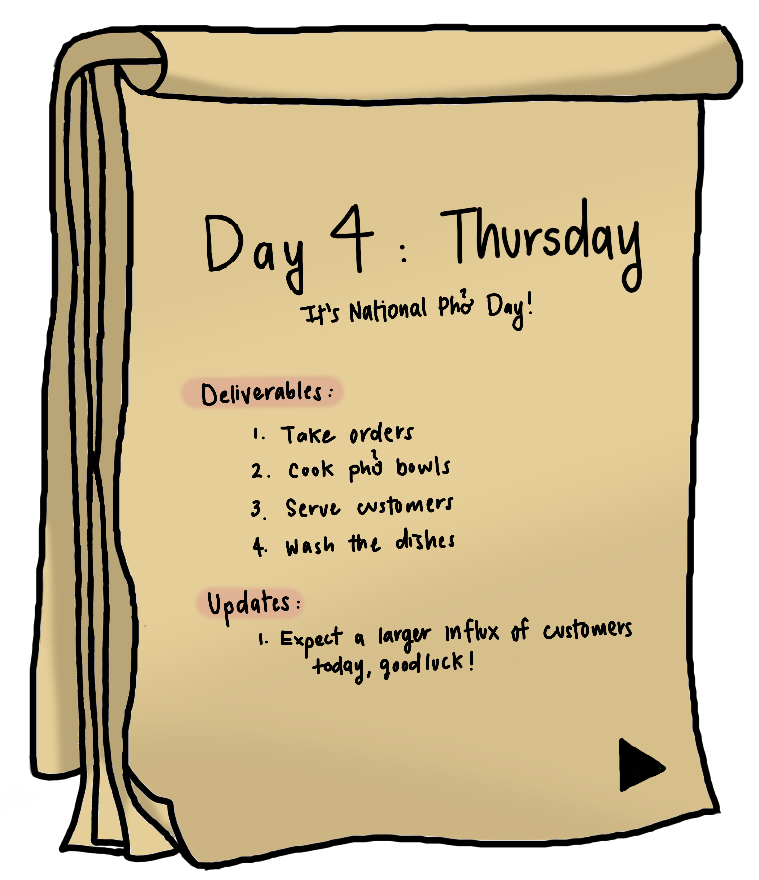 Day 4 : Thursday
It's National Phở Day!
Deliverables:
1. Take orders
2. Cook phở bowls
3. Serve customers
4. Wash the dishes
Updates:
1. Expect a larger influx of customers
today, good luck!